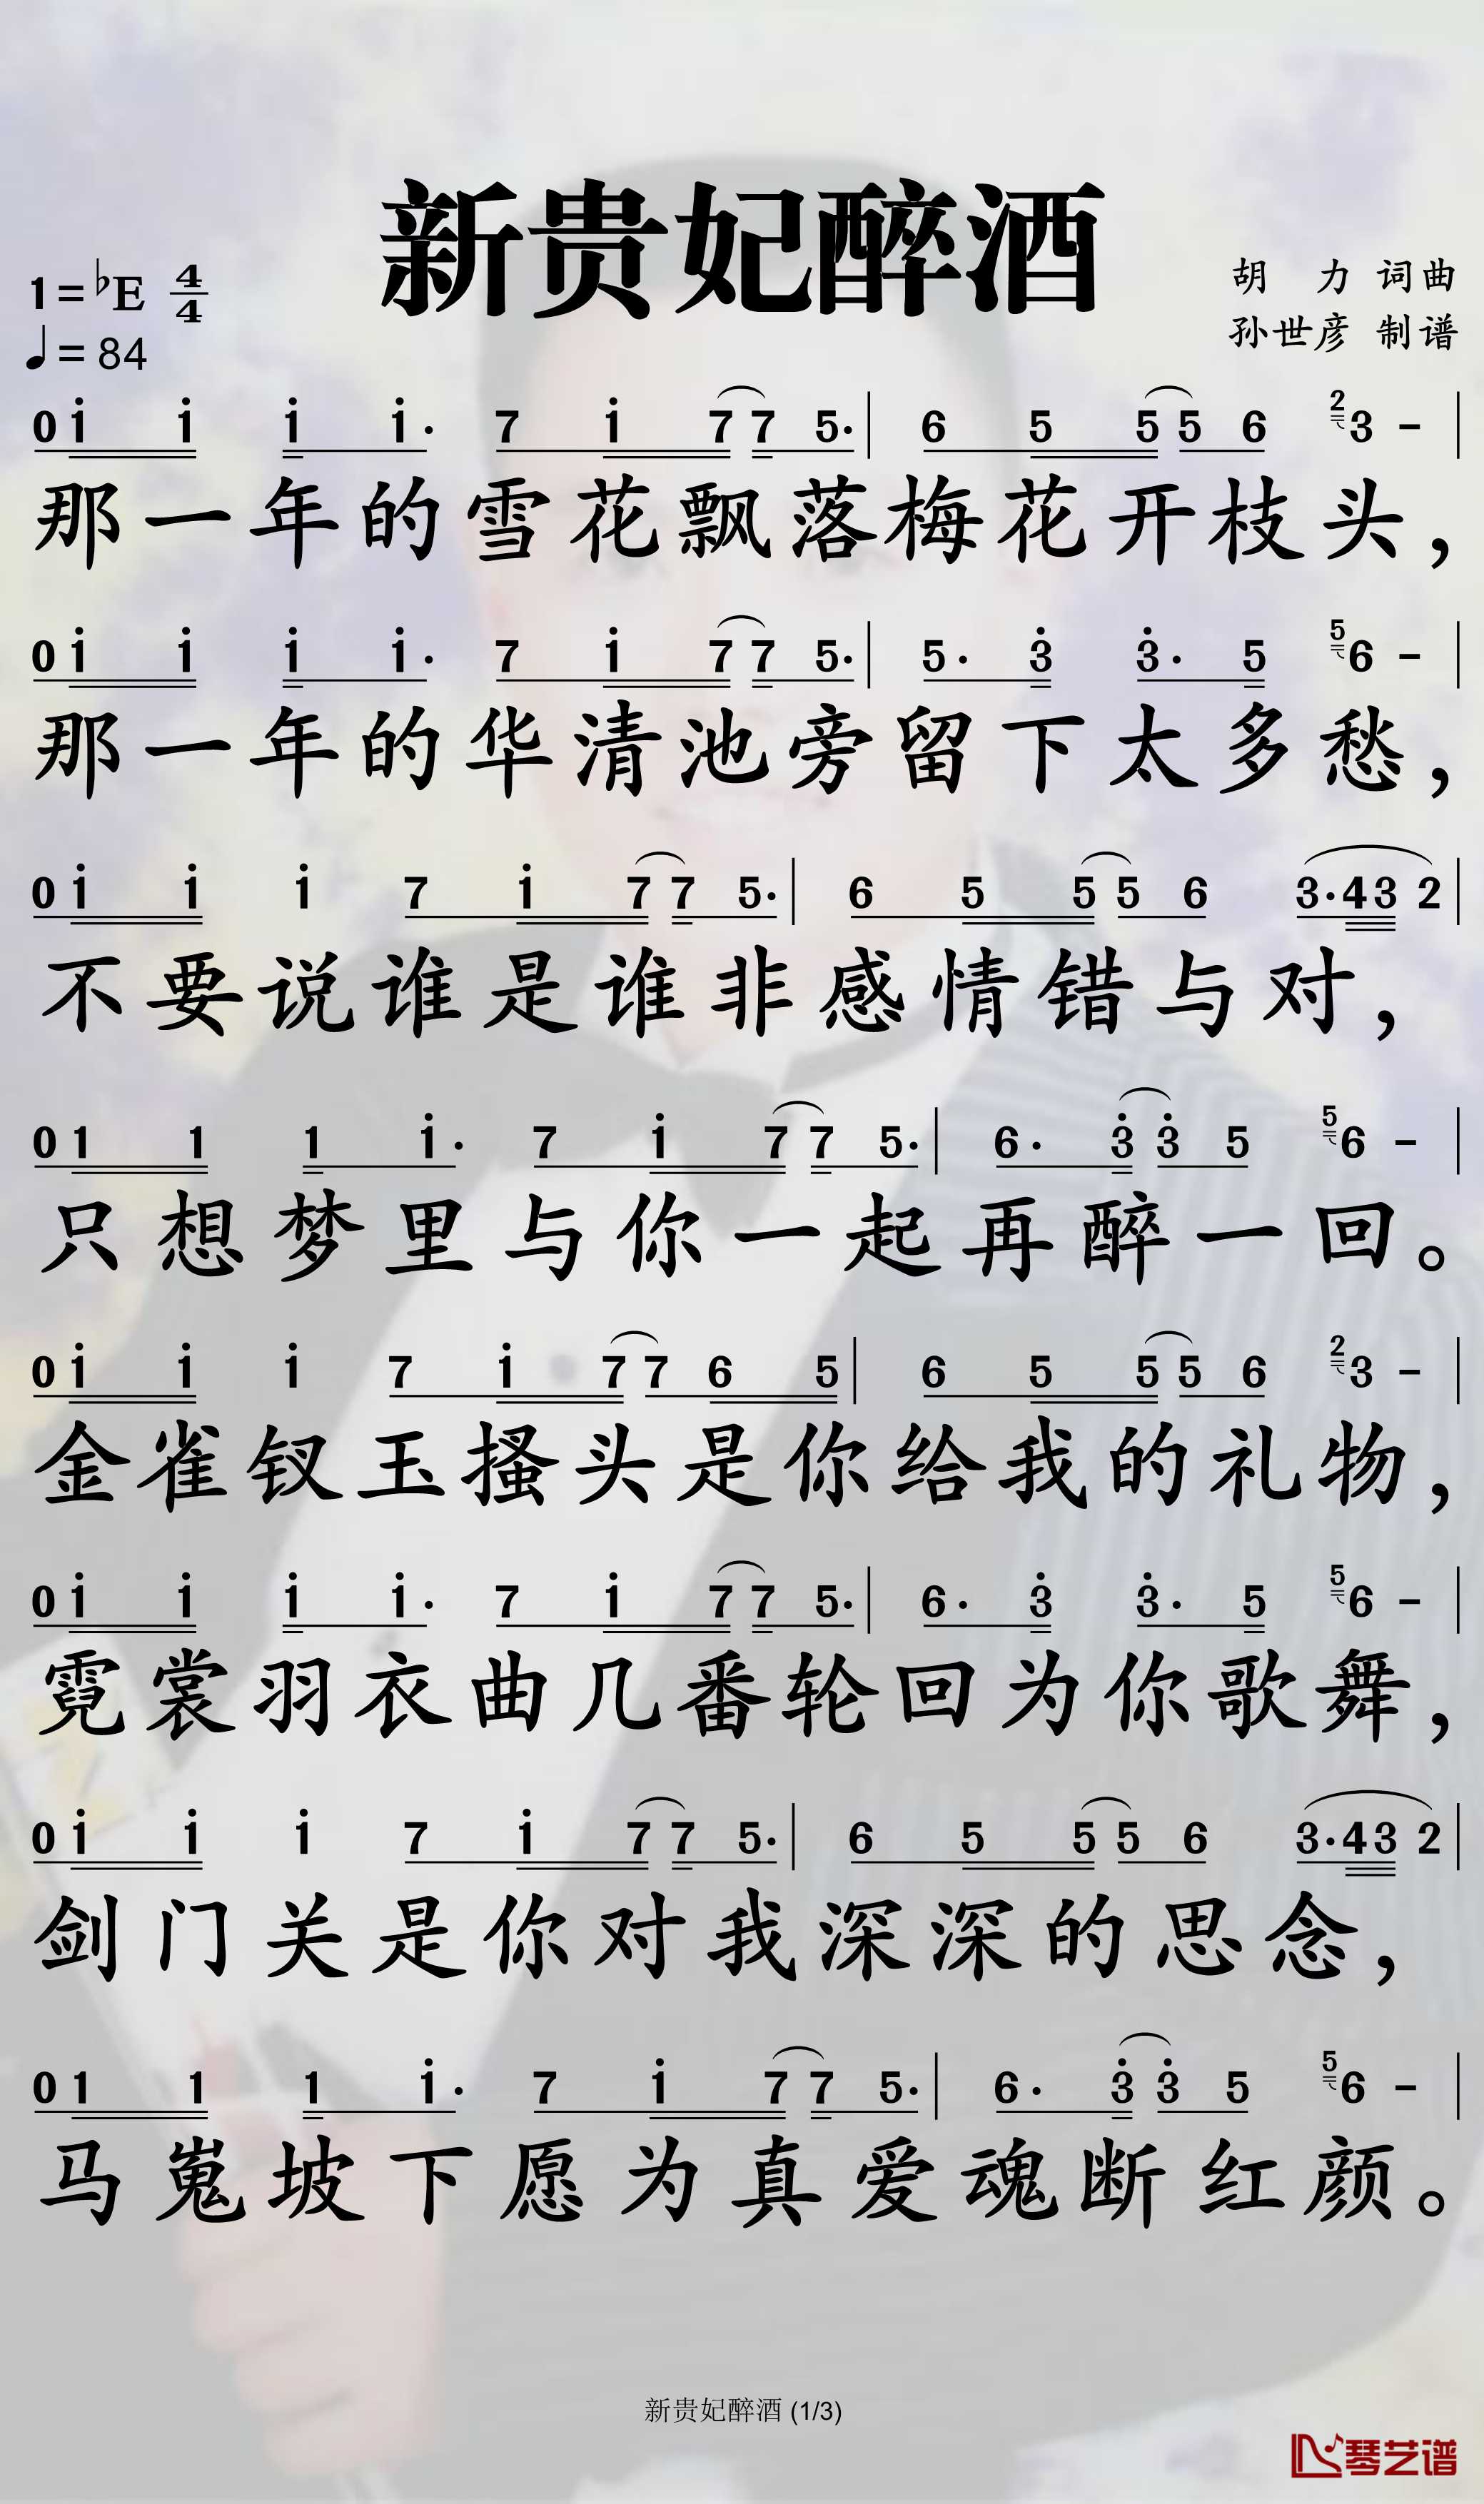 新贵妃醉酒
1=♭E 4/4
胡 力 词曲
♩=84
孙世彦 制谱
0 i i i i· 7 i 7 7 5· | 6 5 5 5 6 2 3 - |
那一年的雪花飘落梅花开枝头，
0 i i i i· 7 i 7 7 5· | 5· 3 3· 5 5 6 - |
那一年的华清池旁留下太多愁，
0 i i i 7 i 7 7 5· | 6 5 5 5 6 3·43 2 |
不要说谁是谁非感情错与对，
0 1 1 1 i· 7 i 7 7 5· | 6· 3 3 5 5 6 - |
只想梦里与你一起再醉一回。
0 i i i 7 i 7 7 6 5 | 6 5 5 5 6 2 3 - |
金雀钗玉搔头是你给我的礼物，
0 i i i i· 7 i 7 7 5· | 6· 3 3· 5 5 6 - |
霓裳羽衣曲几番轮回为你歌舞，
0 i i i 7 i 7 7 5· | 6 5 5 5 6 3·43 2 |
剑门关是你对我深深的思念，
0 1 1 1 i· 7 i 7 7 5· | 6· 3 3 5 5 6 - |
马嵬坡下愿为真爱魂断红颜。
新贵妃醉酒 (1/3)
琴艺谱